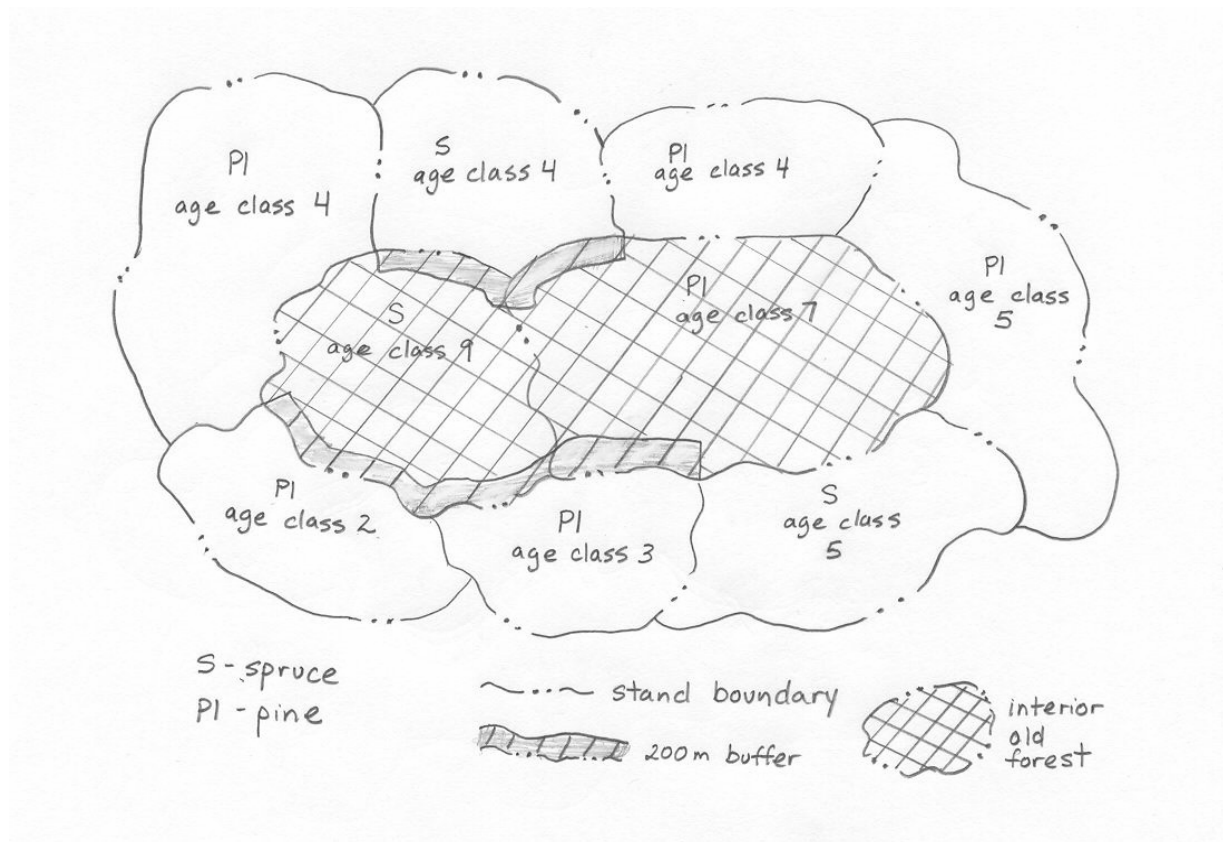 Pl
age class 4
S
age class 4
Pl
age class 4
Pl
age class
5
S
age class 9
Pl
age class 7
Pl
age class 2
Pl
age class 3
S
age class
5
S - spruce
Pl - pine
stand boundary
200m buffer
interior
old
forest